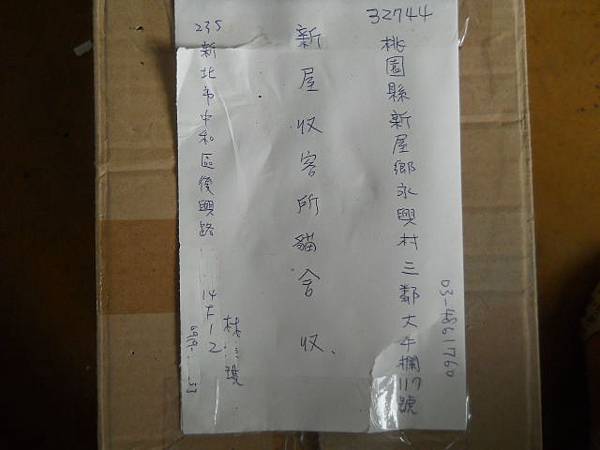 32744
桃園縣新屋鄉永興村三鄰大牛欄117號
03-4861760
新屋收容所貓舍 收
235
新北市中和區復興路
14F-12
林